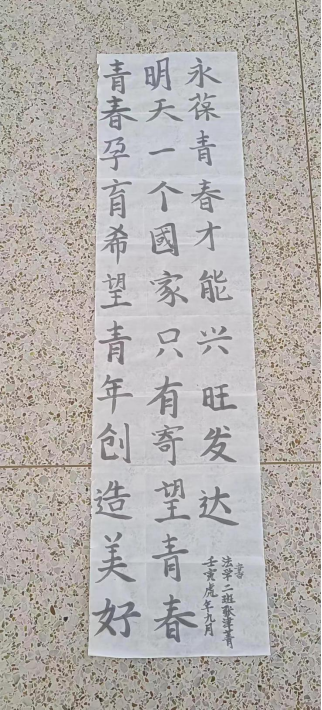 青春孕育希望青年创造美好
明天一个國家只有寄望青春
永葆青春才能兴旺发达
壬寅虎年九月
法学二班
書